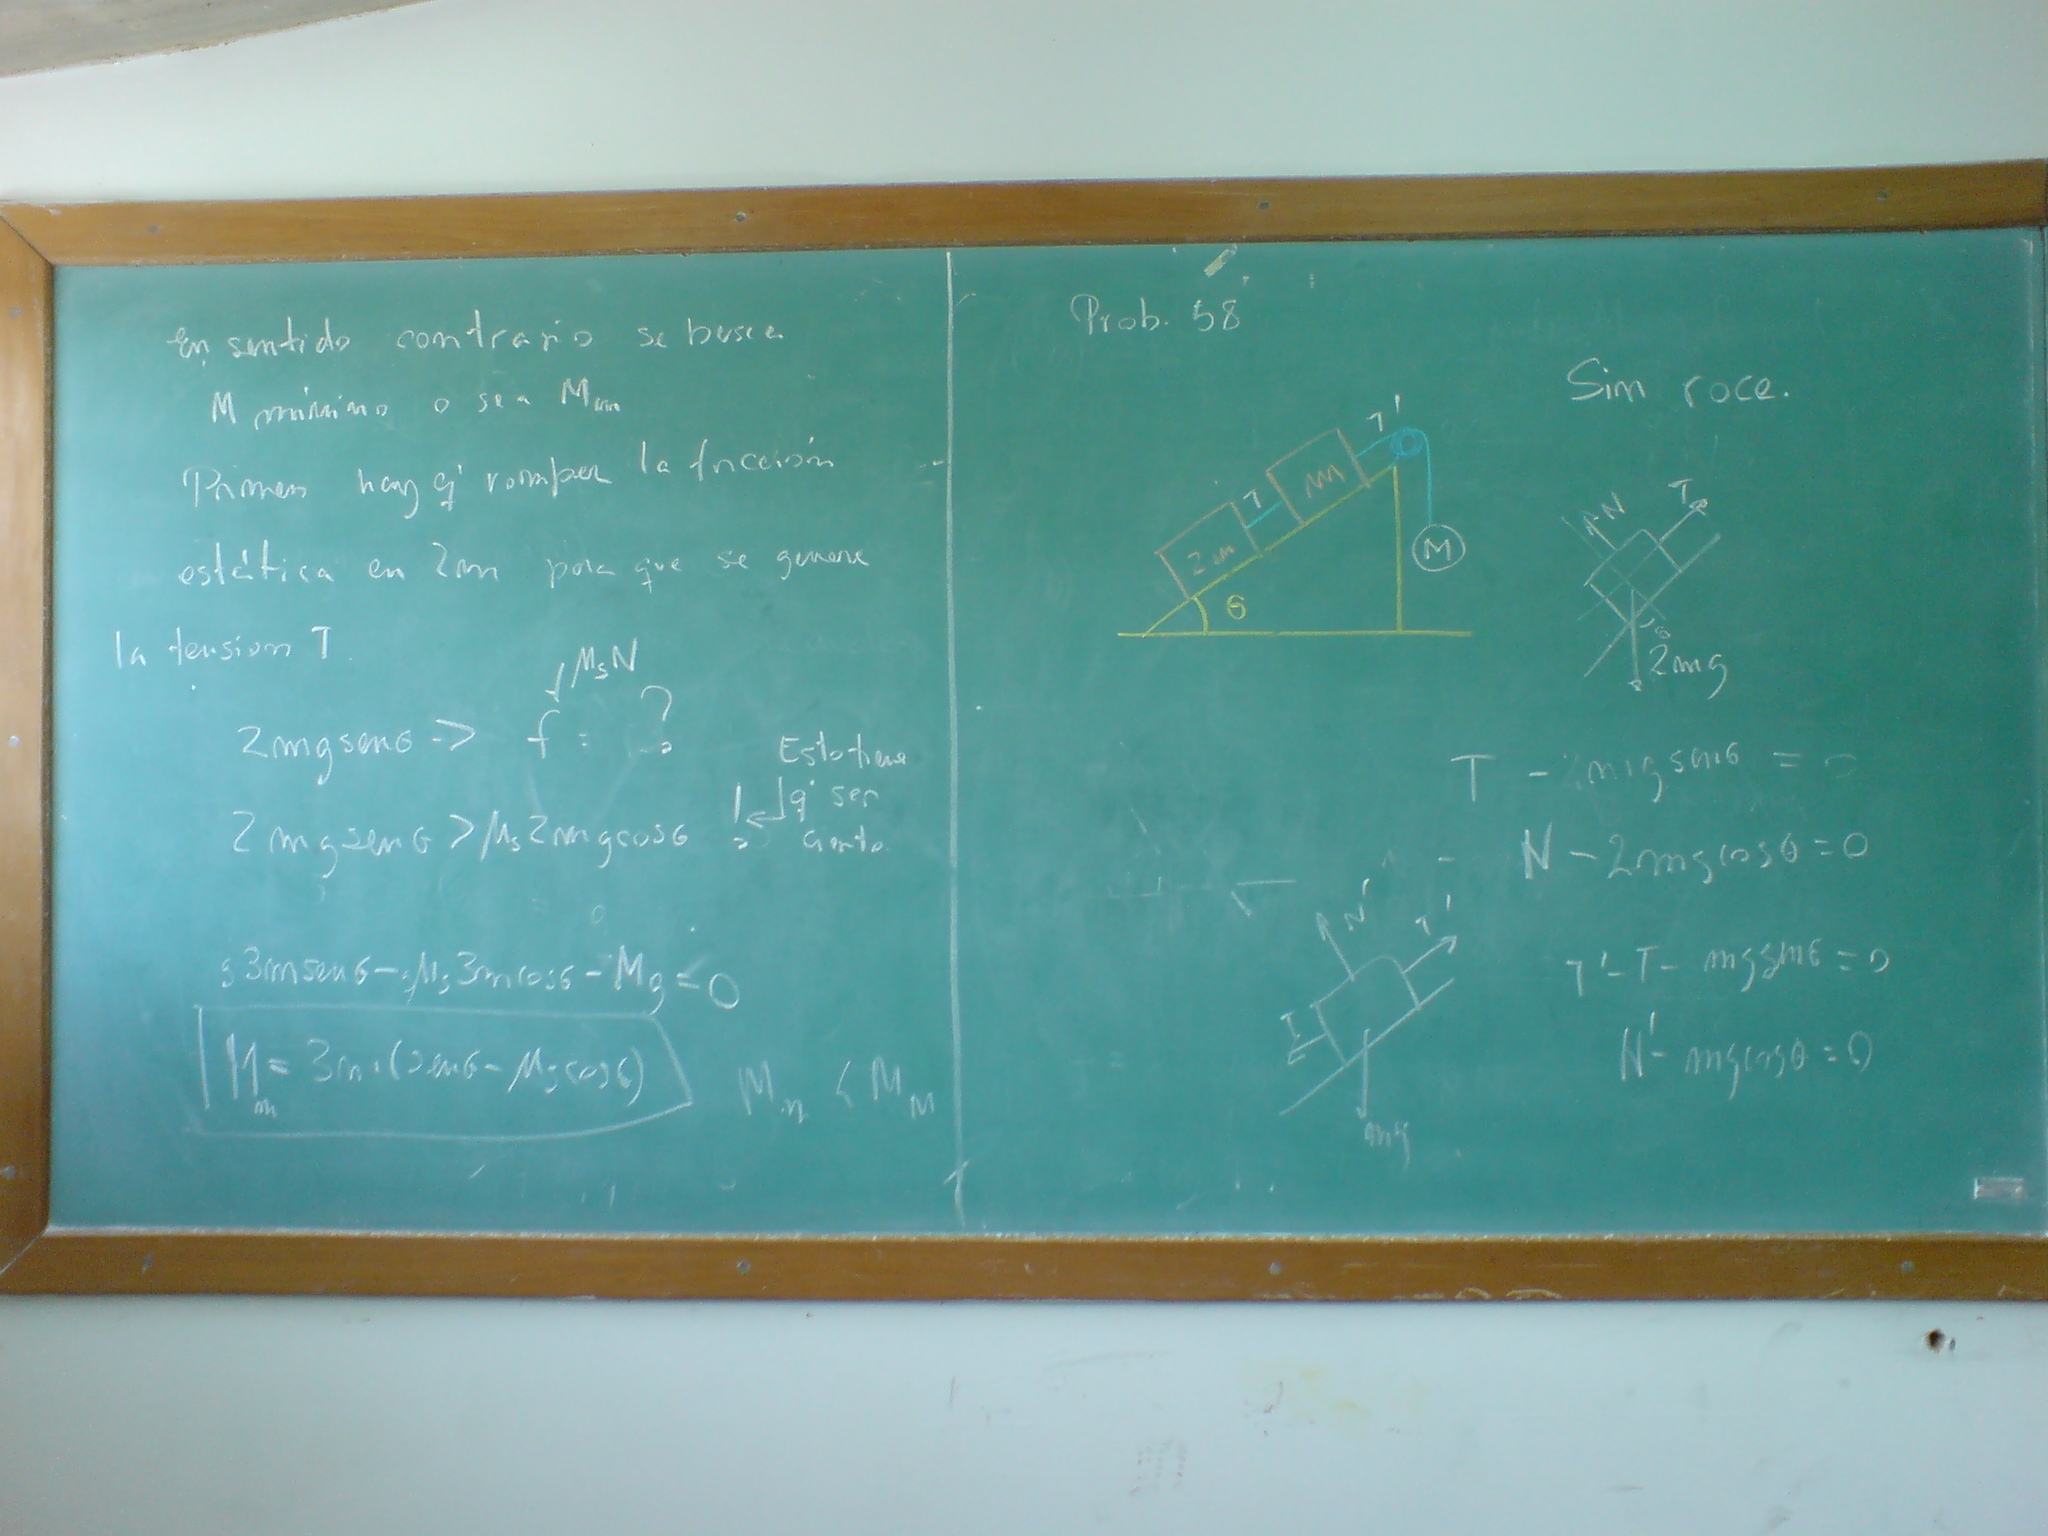 En sentido contrario se busca
M mínimo o sea Mm
Primero hay q' romper la fricción
estática en 2m para que se genere
la tension T.
μsN
2mgsenθ => f = ?
2mgsenθ > μs2mgcosθ
Esto tiene
q' ser
cierto.
g3msenθ - μs3mcosθ - Mg = 0
Mm = 3m·(senθ - μscosθ)
Mm < MM
Prob. 58
Sin roce.
T'
m
T
2m
M
θ
N
T
θ
2mg
T - 2mgsenθ = 0
N - 2mgcosθ = 0
N'
T'
T
mg
T' - T - mgsenθ = 0
N' - mgcosθ = 0